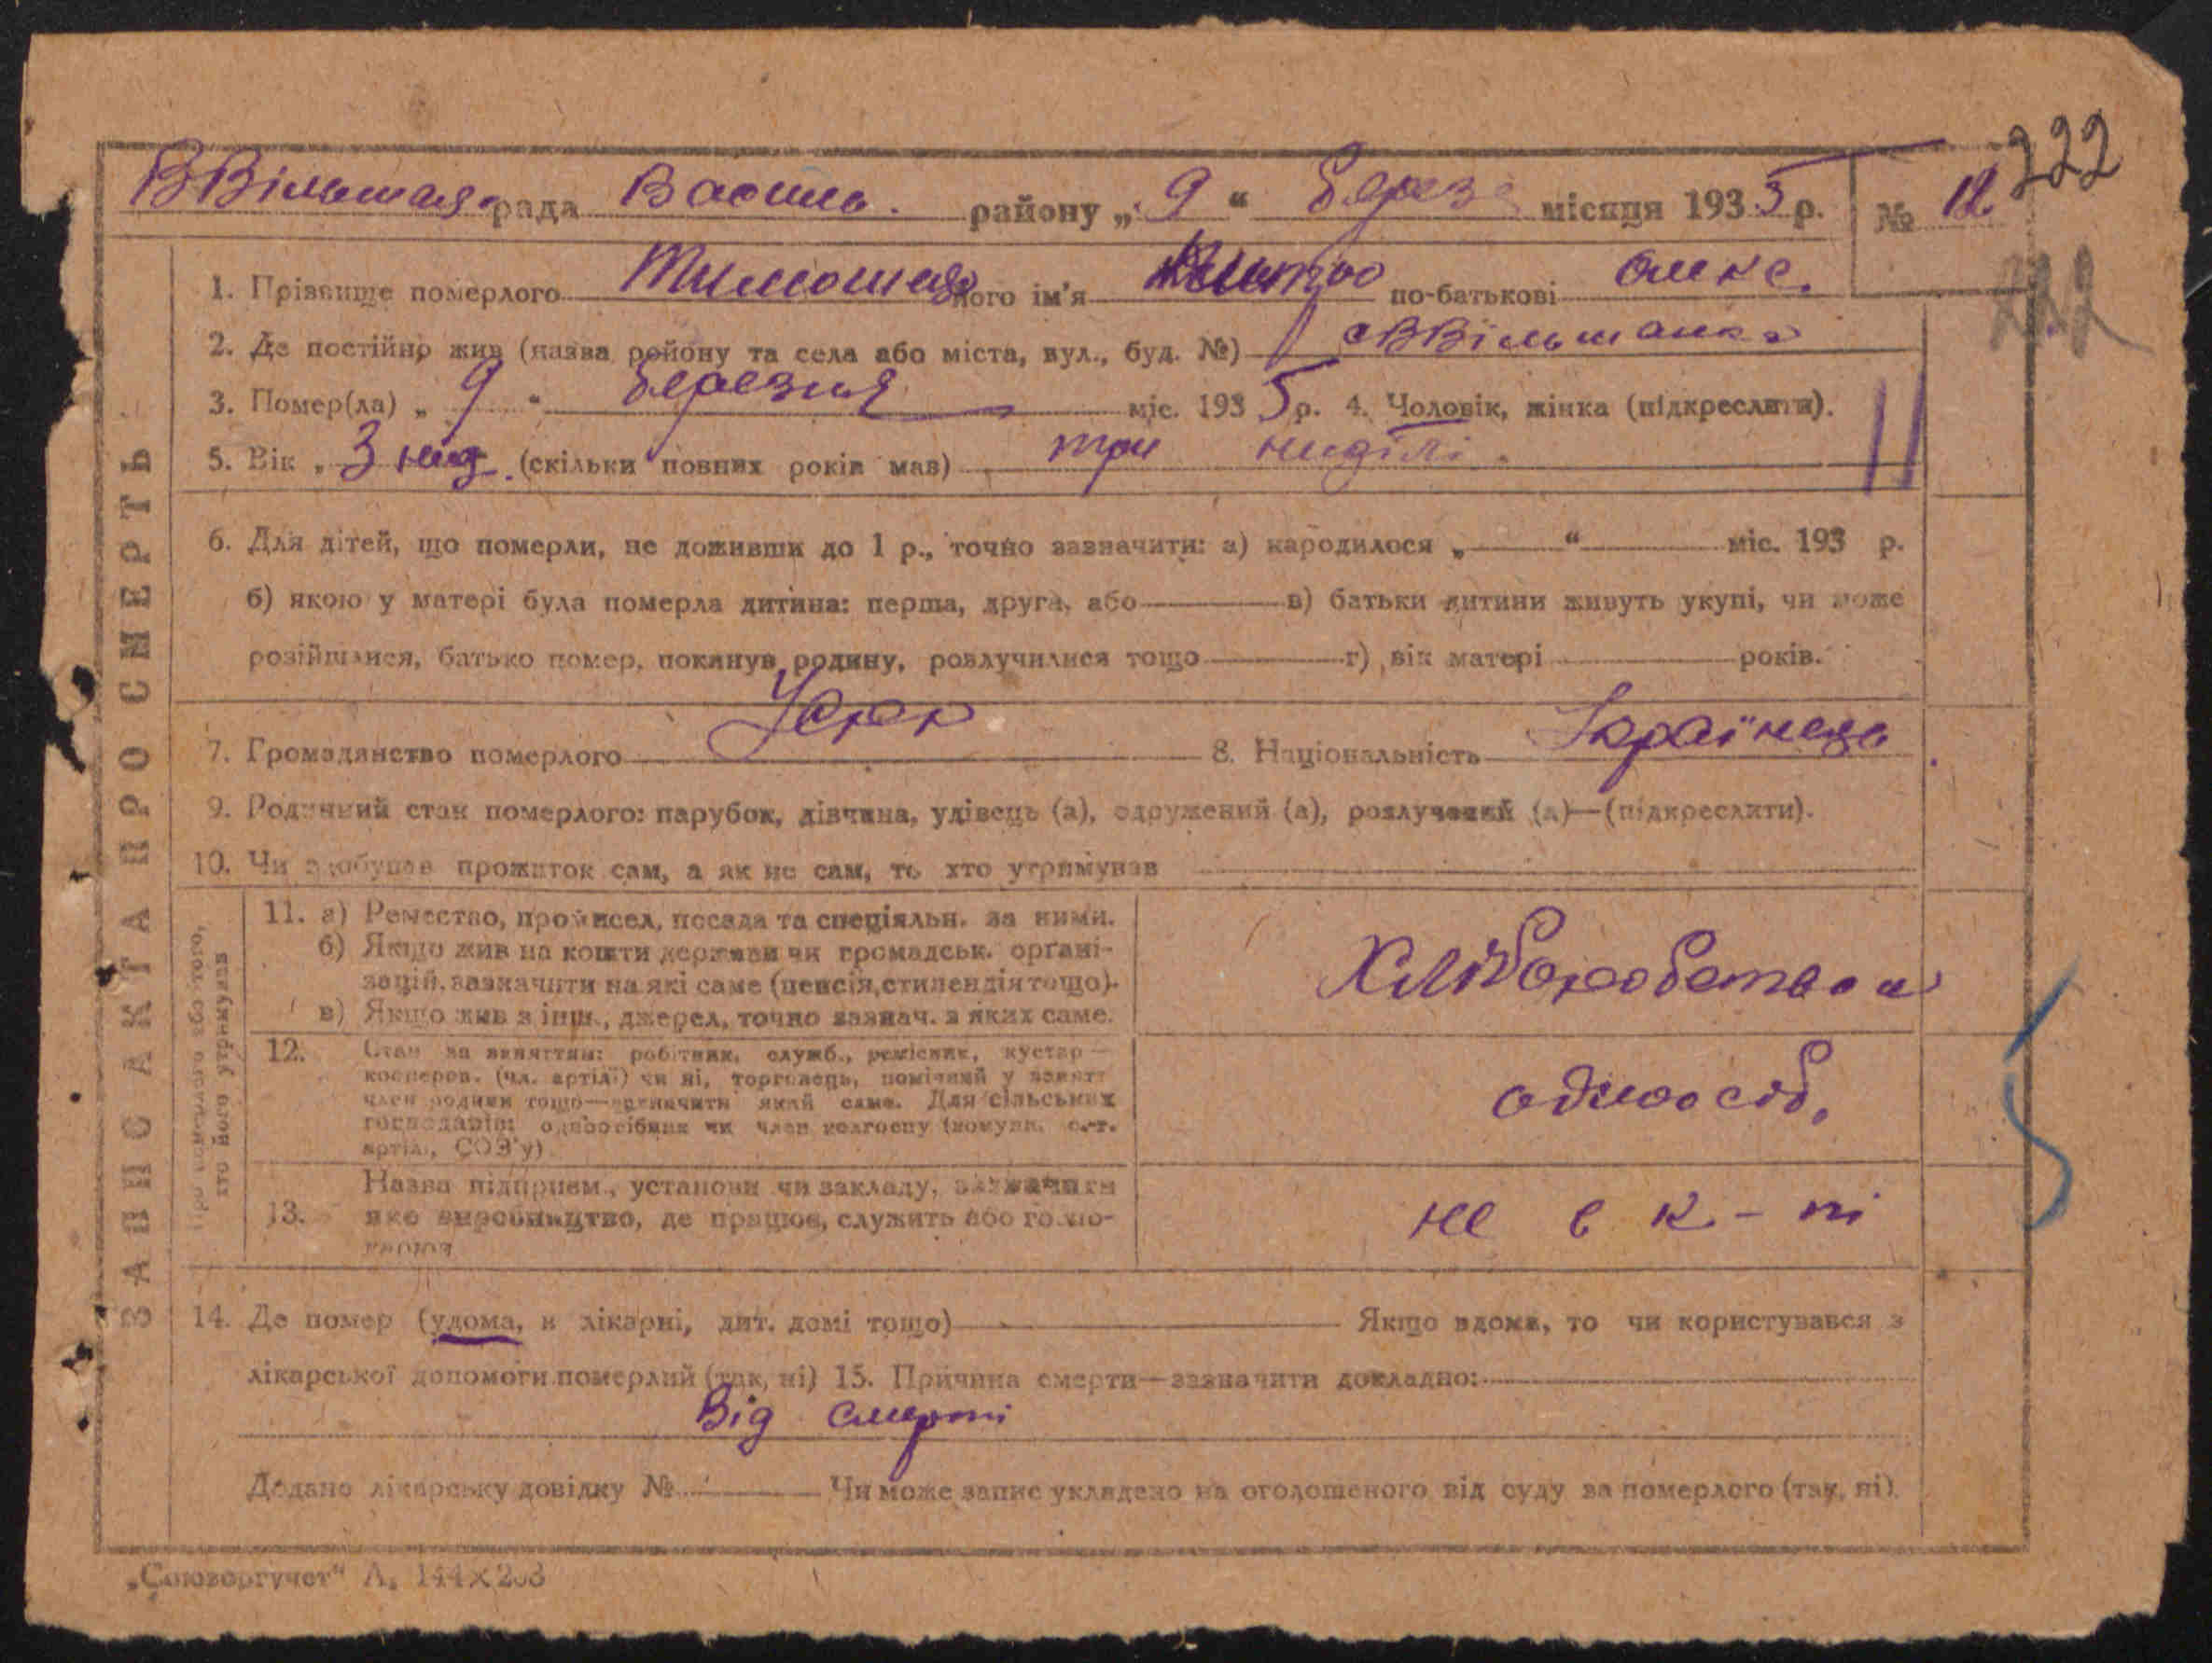 222
ВВільшанс. рада Василь. району „ 9 “ березня місяця 1935 р. № 12.
1. Прізвище померлого його ім'я по-батькові Олекс.
2. Де постійно жив (назва району та села або міста, вул., буд. №) с ВВільшанка
3. Помер(ла) „ 9 “ березня міс. 1935 р. 4. Чоловік, жінка (підкреслити).
5. Вік „ 3 нид. (скільки повних років мав) три ниділі
6. Для дітей, що померли, не доживши до 1 р., точно зазначити: а) народилося „ “ міс. 193 р.
б) якою у матері була померла дитина: перша, друга, або в) батьки дитини живуть укупі, чи може
розійшлися, батько помер, покинув родину, розлучилися тощо г) вік матері років.
7. Громадянство померлого УСРР 8. Національність Українець
9. Родинний стан померлого: парубок, дівчина, удівець (а), одружений (а), розлучений (а)—(підкреслити).
10. Чи здобував прожиток сам, а як не сам, то хто утримував
ЗАПИС АКТА ПРО СМЕРТЬ
Про померлого або того,
хто його утримував
11. а) Ремество, промисел, посада та спеціяльн. за ними.
б) Якщо жив на кошти держави чи громадськ. органі-
зацій, зазначити на які саме (пенсія, стипендія тощо).
в) Якщо жив з інш., джерел, точно зазнач. з яких саме.
Хліборобством
12. Стан за заняттям: робітник, служб., ремісник, кустар—
кооперов. (чл. артілі) чи ні, торговець, помічний у занятт
член родини тощо—зазначити який саме. Для сільських
господарів: одноосібник чи член колгоспу (комуни, с.-г.
артілі, СОЗ'у)
одноосіб.
13. Назва підприєм., установи чи закладу, зазначити
яке виробництво, де працює, служить або госпо-
дарює
не в к-пі
14. Де помер (удома, в лікарні, дит. домі тощо) Якщо вдома, то чи користувався з
лікарської допомоги померлий (так, ні) 15. Причина смерти—зазначити докладно:
Від смерті
Додано лікарську довідку № Чи може запис укладено на оголошеного від суду за померлого (так, ні)
„Союзоргучет“ А₅ 144×203